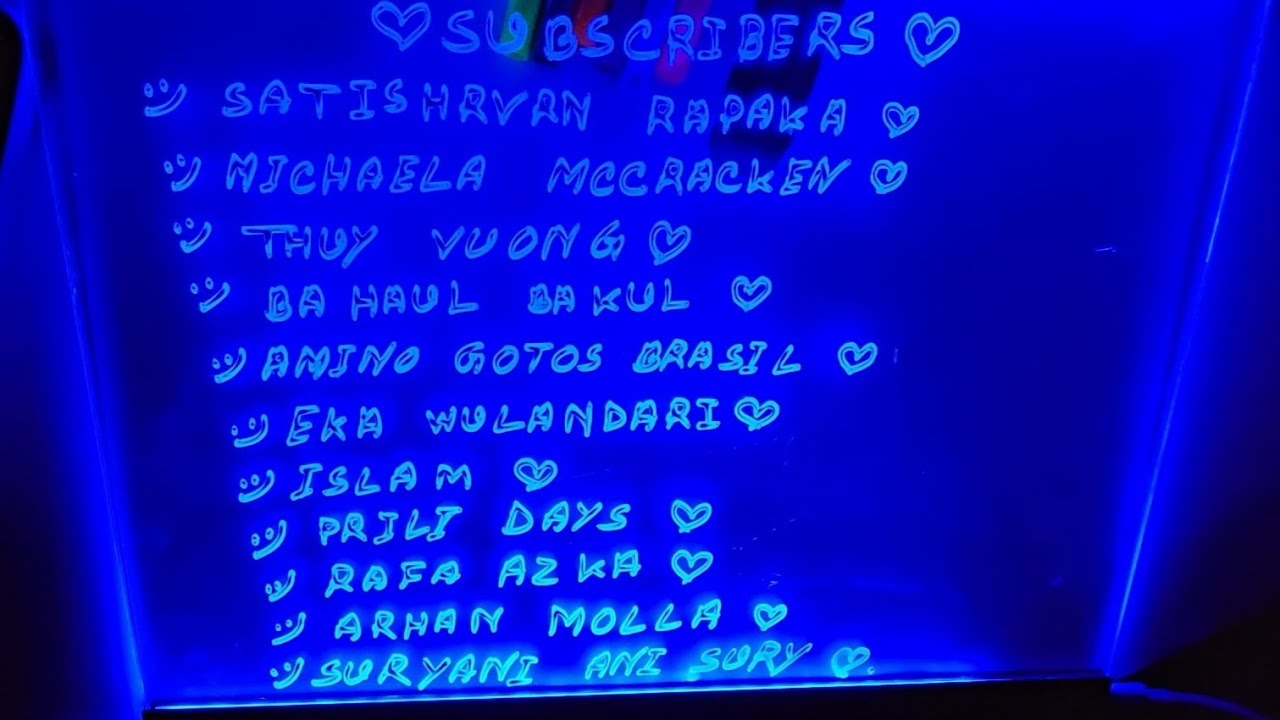 ♡ SUBSCRIBERS ♡
SATISHRVRN RAPAKA ♡
MICHAELA MCCRACKEN ♡
THUY VUONG ♡
BAHAUL BAKUL ♡
AMINO GOTOS BRASIL ♡
EKA WULANDARI ♡
ISLAM ♡
PRILI DAYS ♡
RAFA AZKA ♡
ARHAN MOLLA ♡
SURYANI ANI SURY ♡